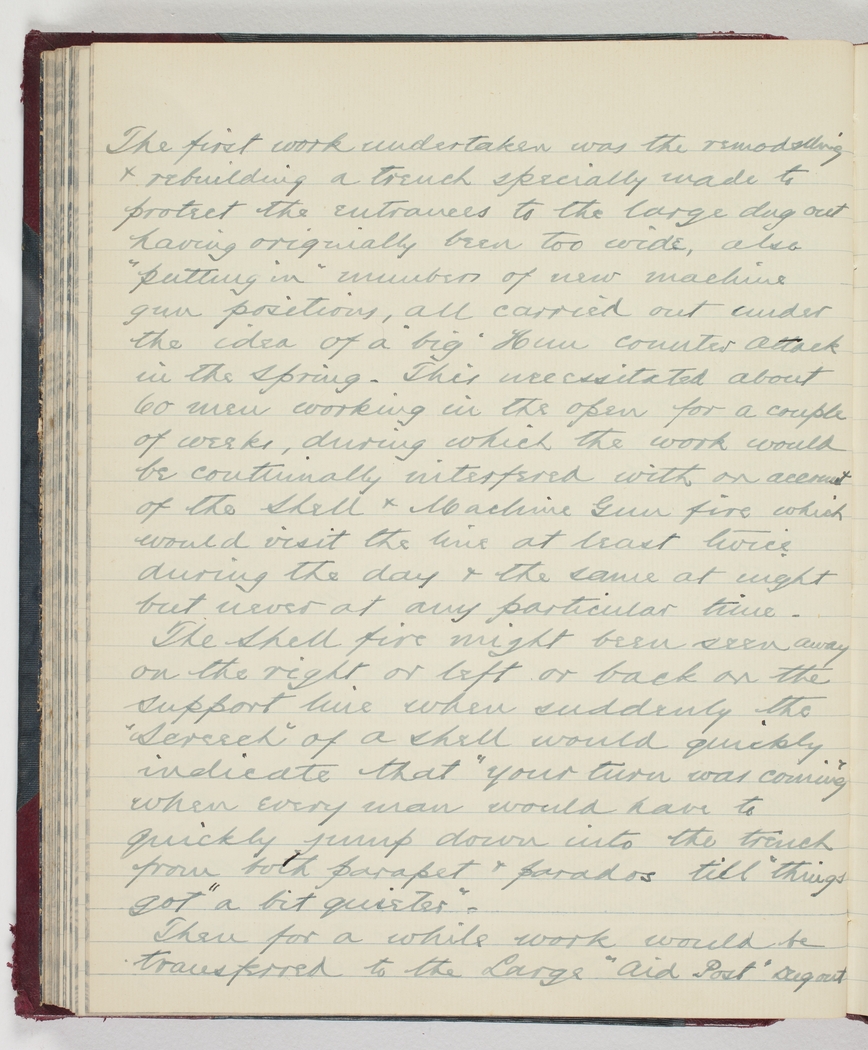 The first work undertaken was the remodelling
& rebuilding a trench specially made to
protect the entrances to the large dug out
having originally been too wide, also
"putting in" numbers of new machine
gun positions, all carried out under
the idea of a "big" Hun counter attack
in the Spring. This necessitated about
60 men working in the open for a couple
of weeks, during which the work would
be continually interfered with on account
of the Shell & Machine Gun fire which
would visit the line at least twice
during the day & the same at night
but never at any particular time.
The Shell fire might been seen away
on the right or left or back on the
support line when suddenly the
"Screech" of a shell would quickly
indicate that "your turn was coming"
when every man would have to
quickly jump down into the trench
from both parapet & parados till "things
got" a bit quieter".
Then for a while work would be
transferred to the Large "Aid Post" Dug out